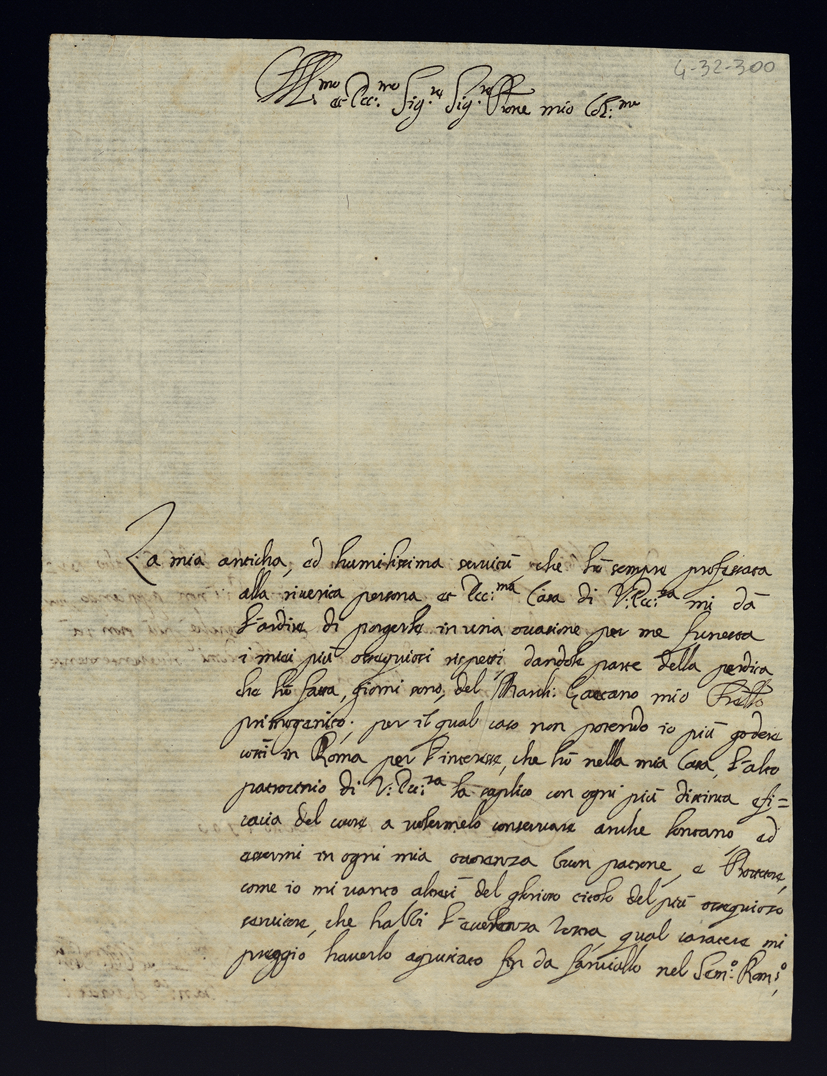 4-32-300
Ill:mo et Ecc:mo Sig:re Sig:re Prone mio Col:mo
La mia anticha, ed humilissima servitù che hò sempre professata
alla riverita persona et Ecc:ma Casa di V: Ecc:za mi dà
l'ardire di porgerle in una occasione per me funesta
i miei più ossequiosi rispetti, dandole parte della perdita,
che hò fatta, giorni sono, del March: Gaetano mio Frello
primogenito; per il qual caso non potendo io più godere
costì in Roma per l'interesse, che hò nella mia Casa, l'alto
patrocinio di V: Ecc:za la suplico con ogni più distinta effi=
cacia del cuore a volermelo conservare anche lontano, ed
essermi in ogni mia occorenza buon patrone, e Protettore,
come io mi vanto altresì del glorioso titolo del più ossequioso
servitore, che habbi l'eccellenza vostra, qual carattere mi
preggio haverlo acquistato fin da fanciullo nel Sem:o Rom:o,